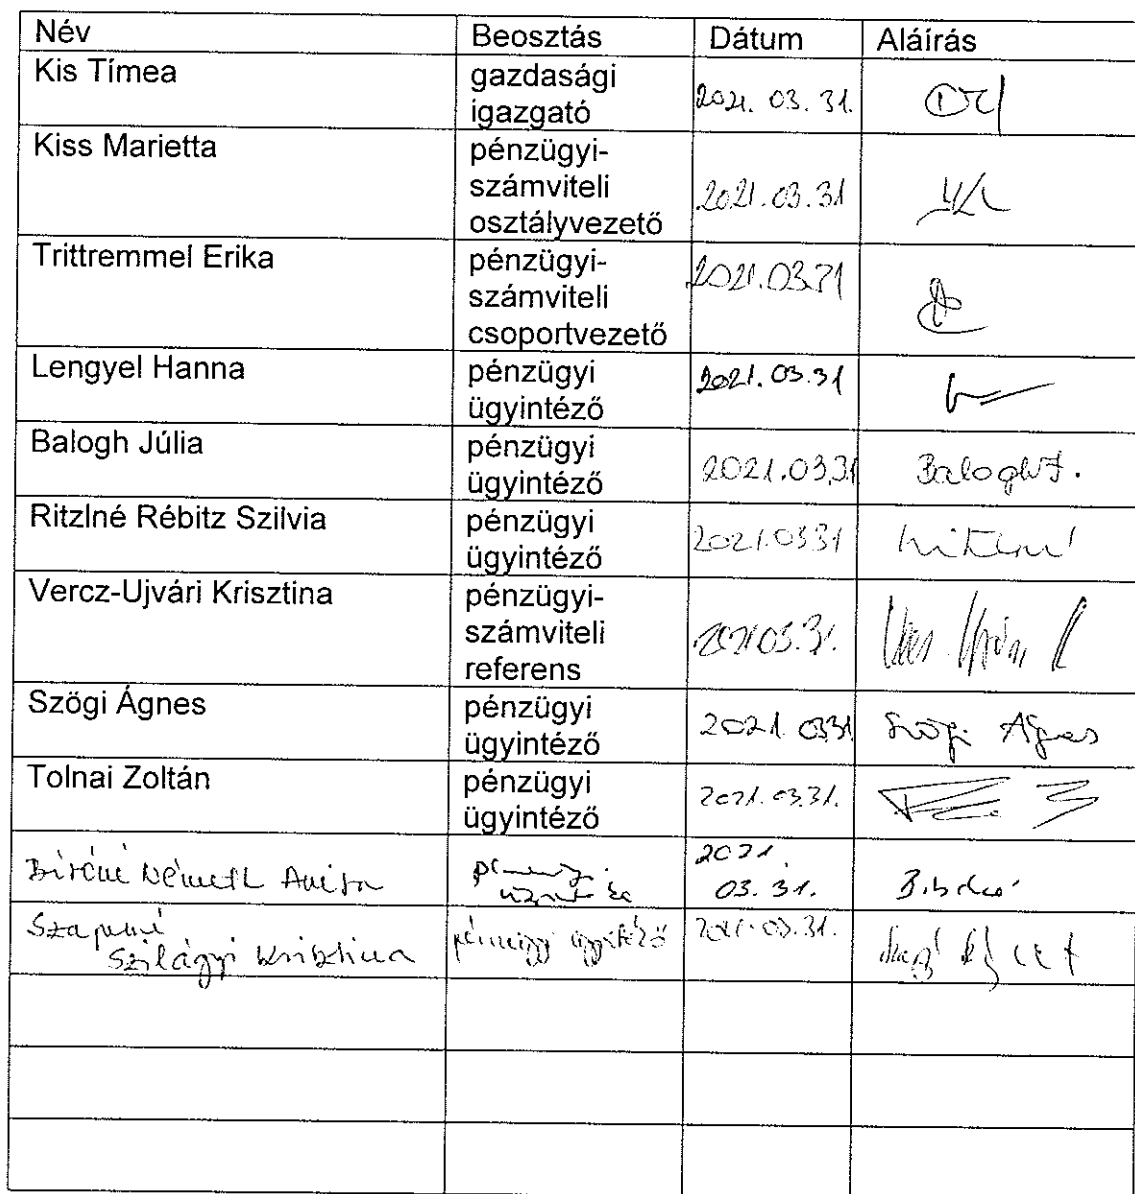 Név Beosztás Dátum Aláírás
Kis Tímea gazdasági
igazgató 2021. 03. 31.
Kiss Marietta pénzügyi-
számviteli
osztályvezető 2021.03.31
Trittremmel Erika pénzügyi-
számviteli
csoportvezető 2021.03.31
Lengyel Hanna pénzügyi
ügyintéző 2021.03.31
Balogh Júlia pénzügyi
ügyintéző 2021.03.31 Balogh J.
Ritzlné Rébitz Szilvia pénzügyi
ügyintéző 2021.03.31
Vercz-Ujvári Krisztina pénzügyi-
számviteli
referens 2021.03.31.
Szögi Ágnes pénzügyi
ügyintéző 2021.03.31 Szögi Ágnes
Tolnai Zoltán pénzügyi
ügyintéző 2021.03.31.
Németh Anita 2021.
03. 31.
Szilágyi Krisztina pénzügyi ügyintéző 2021.03.31.